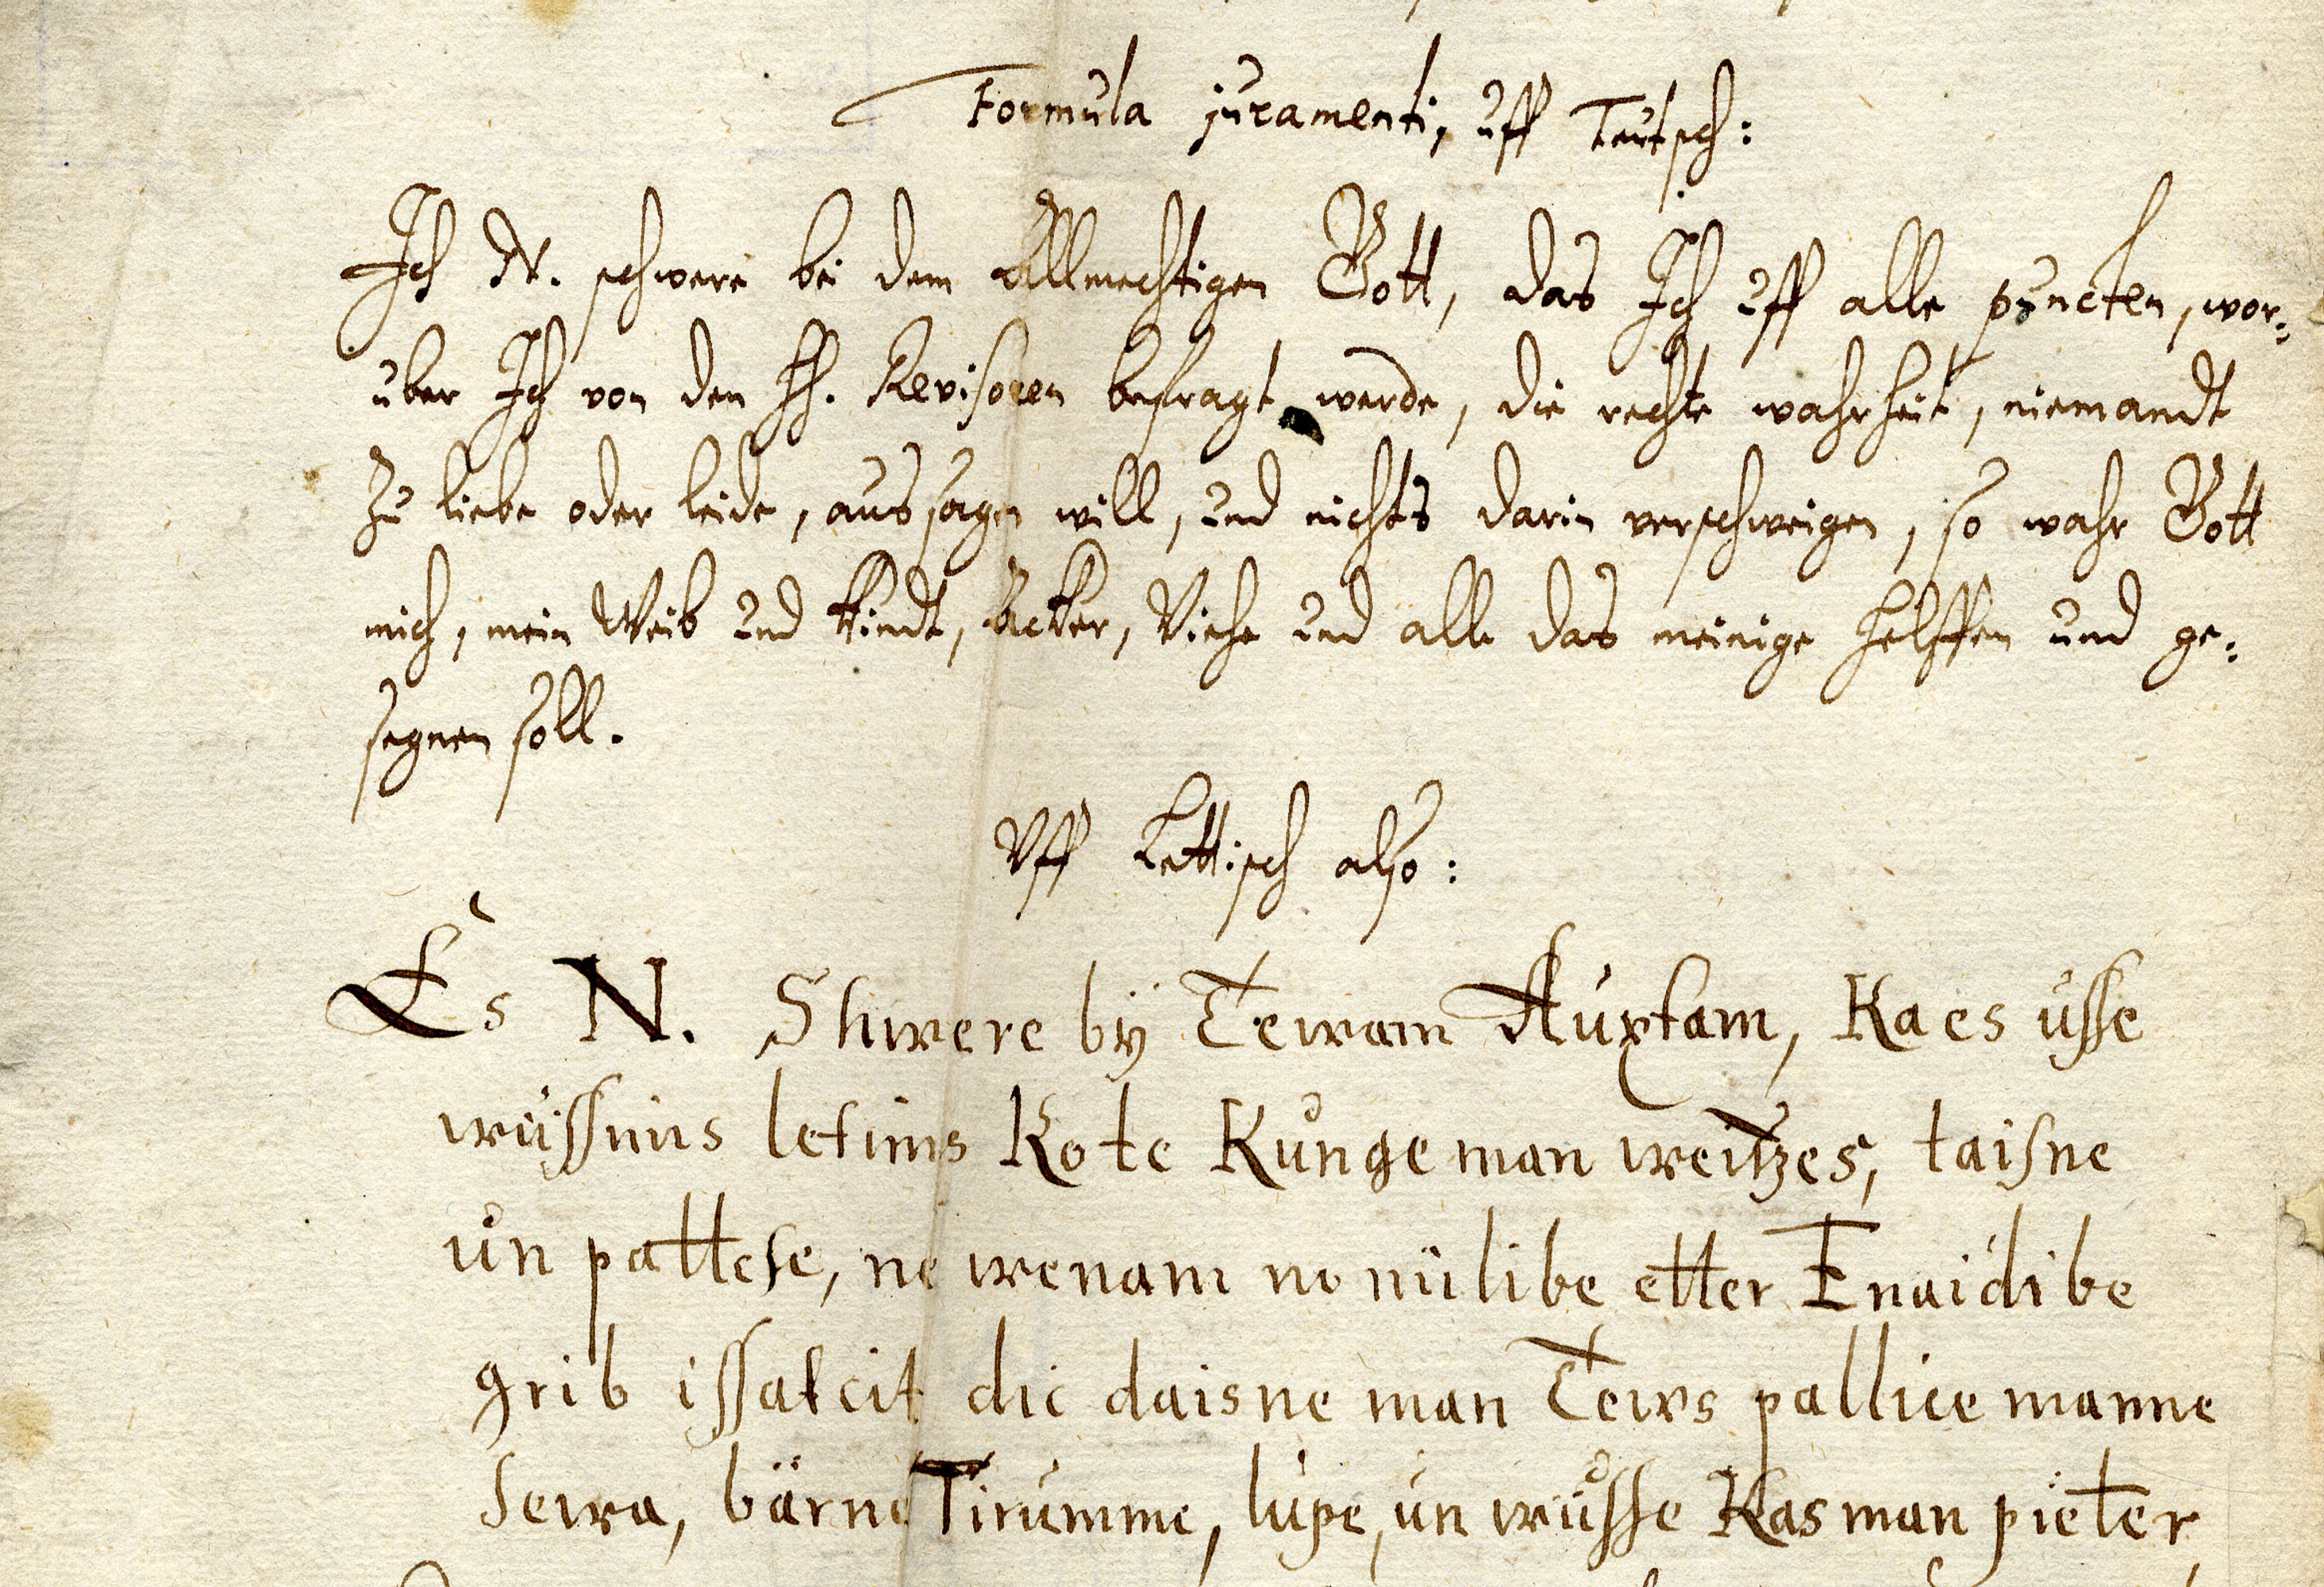 Formula juramenti, uff Teutsch:
Ich N. schwere bei dem Allmechtigen Gott, das Ich uff alle puncten, wor-
uber Ich von den HH. Revisoren befragt werde, die rechte wahrheit, niemandt
zu liebe oder leide, aussagen will, und nichts darin verschweigen, so wahr Gott
mich, mein Weib und Kindt, Acker, Viehe und alle das meinige helffen und ge-
segnen soll.
Uff Lettisch also:
Es N. Shwere bÿ Tewam Auxtam, Ka es usse
wussims letims Kote Kunge man weitzes, taisne
un pattese, ne wenam no milibe etter Enaidibe
grib issatcit dic daisne man Tews pallice manne
sewa, bärne Tirumme, lupe, un wusse Kas man pieter,